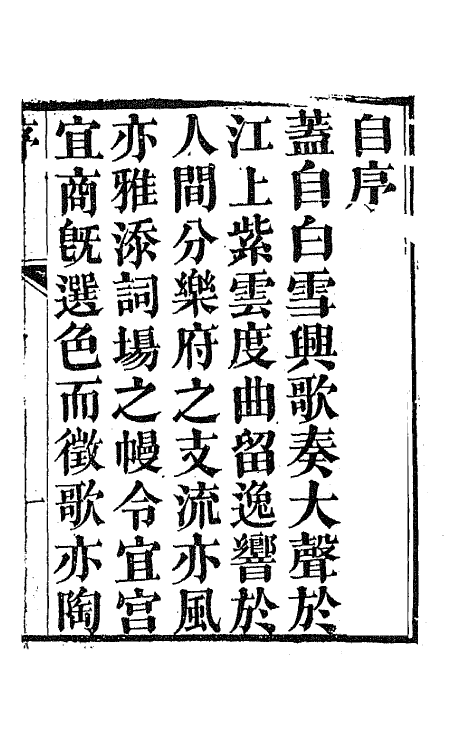 自序
蓋自白雪興歌奏大聲於
江上紫雲度曲留逸響於
人間分樂府之支流亦風
亦雅添詞場之幔令宜宮
宜商旣選色而徵歌亦陶
序
一